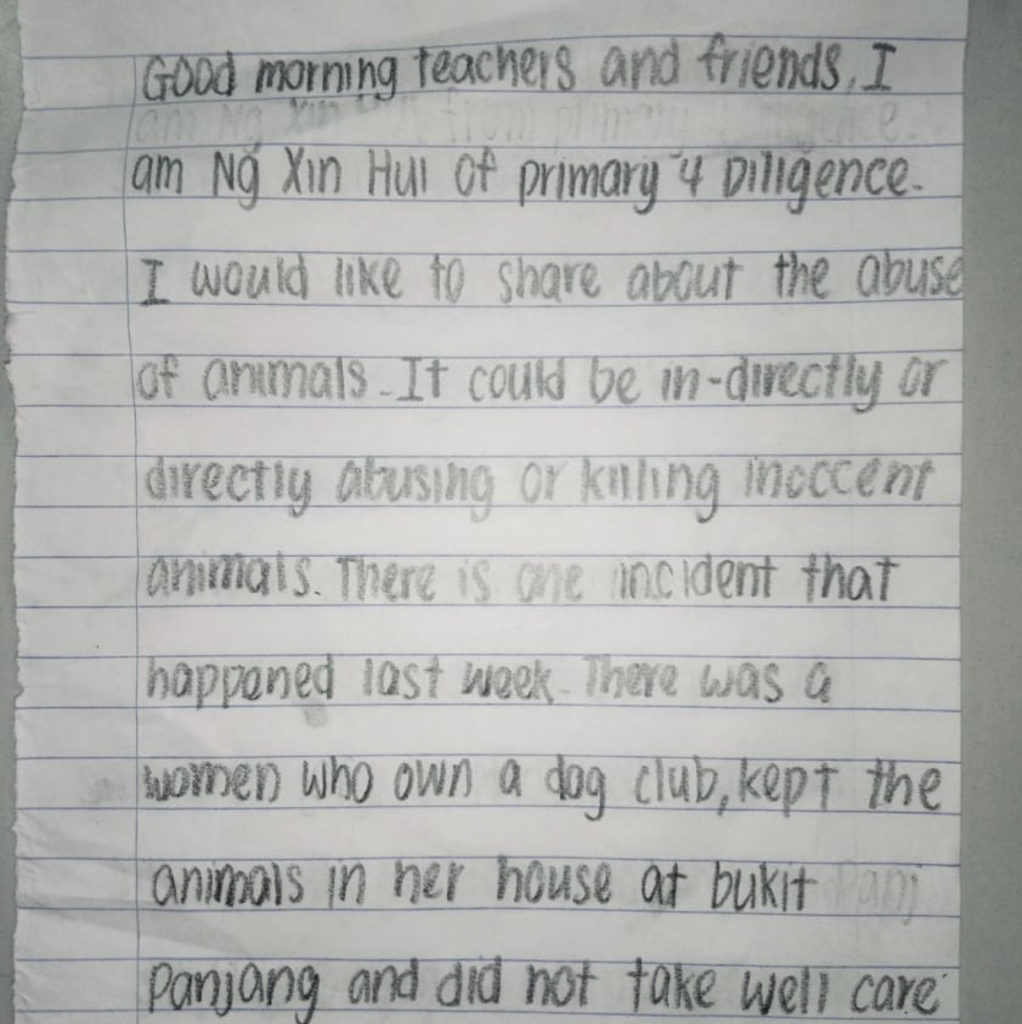 Good morning teachers and friends, I
am Ng Xin Hui of primary 4 Diligence.
I would like to share about the abuse
of animals. It could be in-directly or
directly abusing or killing inoccent
animals. There is one incident that
happened last week. There was a
women who own a dog club, kept the
animals in her house at bukit
Panjang and did not take well care